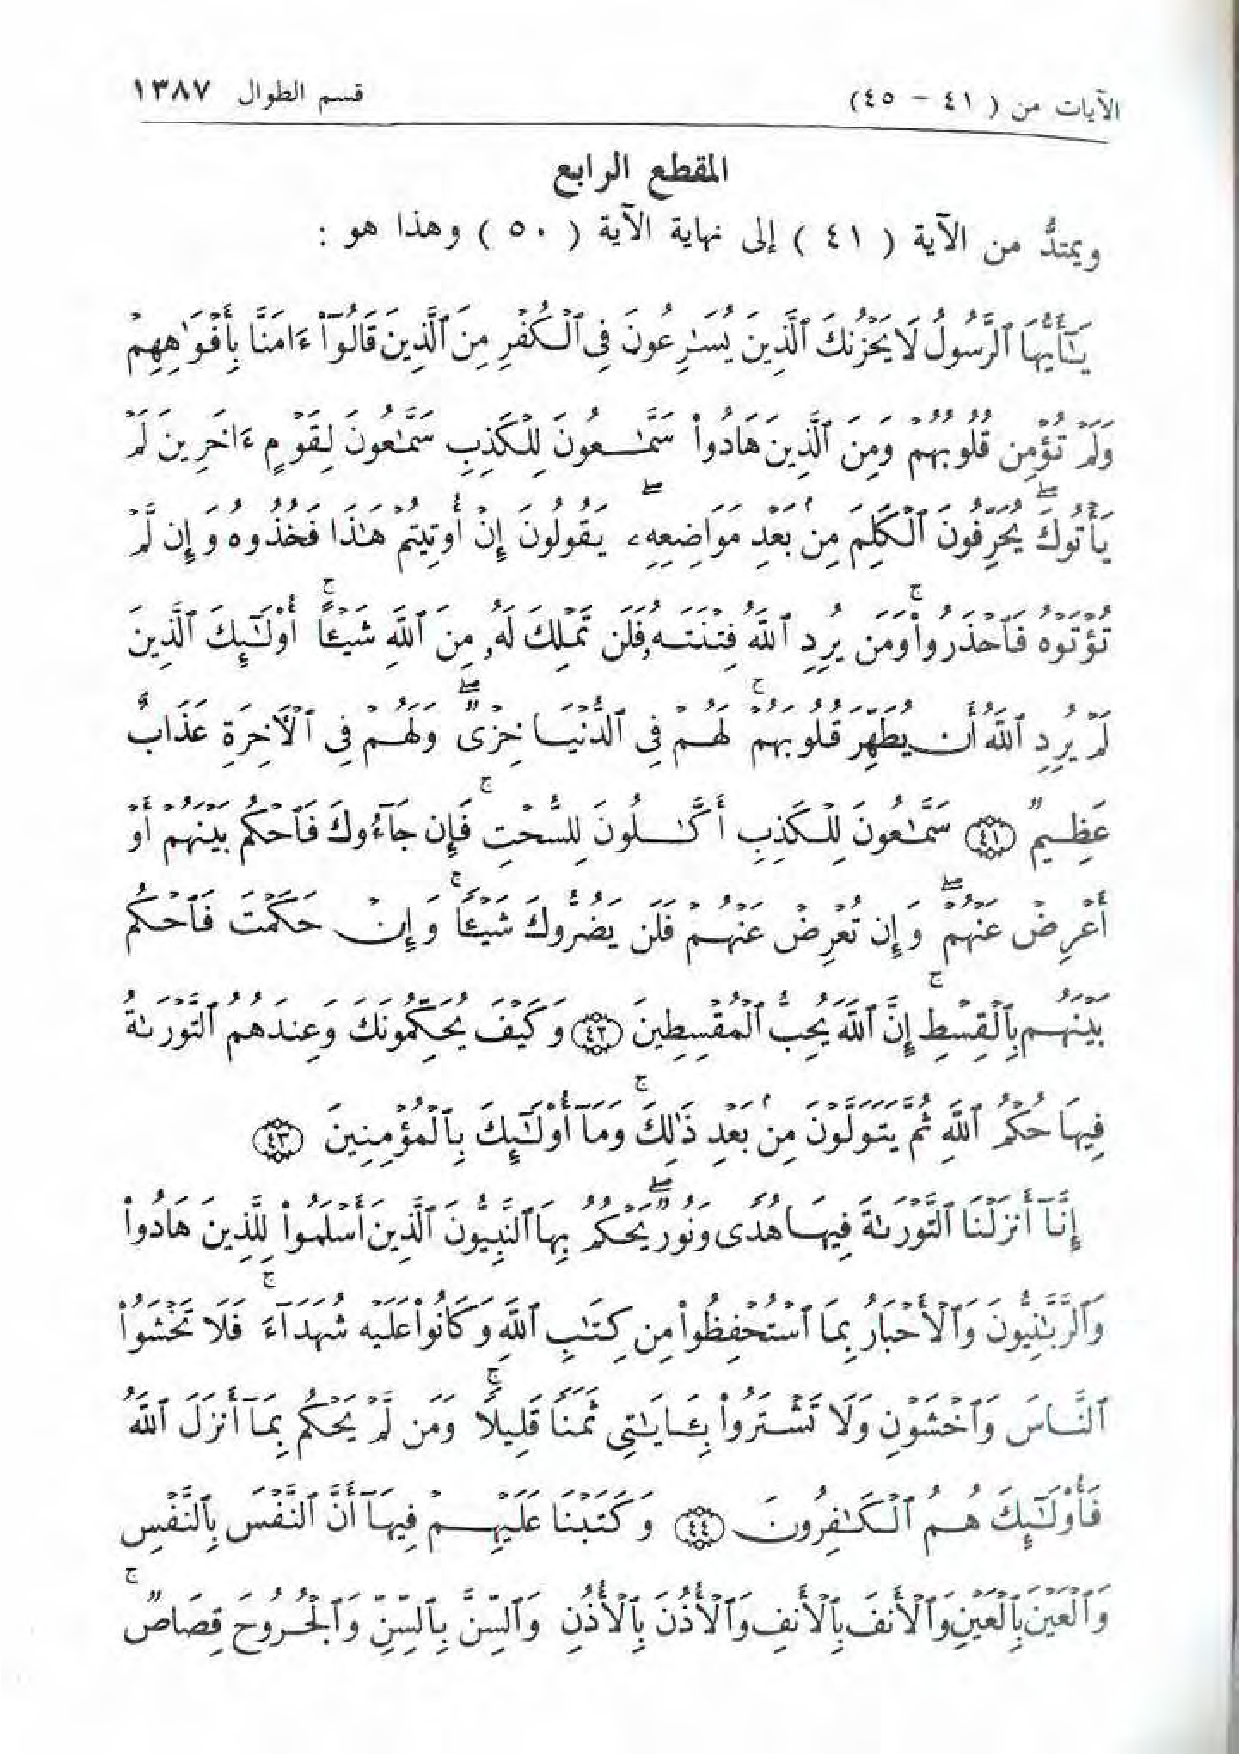 الآيات من ( ٤١ - ٤٥) قسم الطوال ١٣٨٧
المقطع الرابع
ويمتدُّ من الآية ( ٤١ ) إلى نهاية الآية ( ٥٠ ) وهذا هو :
يَٰٓأَيُّهَا ٱلرَّسُولُ لَا يَحْزُنكَ ٱلَّذِينَ يُسَٰرِعُونَ فِى ٱلْكُفْرِ مِنَ ٱلَّذِينَ قَالُوٓا۟ ءَامَنَّا بِأَفْوَٰهِهِمْ
وَلَمْ تُؤْمِن قُلُوبُهُمْ وَمِنَ ٱلَّذِينَ هَادُوا۟ سَمَّٰعُونَ لِلْكَذِبِ سَمَّٰعُونَ لِقَوْمٍ ءَاخَرِينَ لَمْ
يَأْتُوكَ ۖ يُحَرِّفُونَ ٱلْكَلِمَ مِنۢ بَعْدِ مَوَاضِعِهِۦ ۖ يَقُولُونَ إِنْ أُوتِيتُمْ هَٰذَا فَخُذُوهُ وَإِن لَّمْ
تُؤْتَوْهُ فَٱحْذَرُوا۟ ۚ وَمَن يُرِدِ ٱللَّهُ فِتْنَتَهُۥ فَلَن تَمْلِكَ لَهُۥ مِنَ ٱللَّهِ شَيْـًٔا ۚ أُو۟لَٰٓئِكَ ٱلَّذِينَ
لَمْ يُرِدِ ٱللَّهُ أَن يُطَهِّرَ قُلُوبَهُمْ ۚ لَهُمْ فِى ٱلدُّنْيَا خِزْىٌ ۖ وَلَهُمْ فِى ٱلْءَاخِرَةِ عَذَابٌ
عَظِيمٌ ﴿٤١﴾ سَمَّٰعُونَ لِلْكَذِبِ أَكَّٰلُونَ لِلسُّحْتِ ۚ فَإِن جَآءُوكَ فَٱحْكُم بَيْنَهُمْ أَوْ
أَعْرِضْ عَنْهُمْ ۖ وَإِن تُعْرِضْ عَنْهُمْ فَلَن يَضُرُّوكَ شَيْـًٔا ۚ وَإِنْ حَكَمْتَ فَٱحْكُم
بَيْنَهُم بِٱلْقِسْطِ ۚ إِنَّ ٱللَّهَ يُحِبُّ ٱلْمُقْسِطِينَ ﴿٤٢﴾ وَكَيْفَ يُحَكِّمُونَكَ وَعِندَهُمُ ٱلتَّوْرَىٰةُ
فِيهَا حُكْمُ ٱللَّهِ ثُمَّ يَتَوَلَّوْنَ مِنۢ بَعْدِ ذَٰلِكَ ۚ وَمَآ أُو۟لَٰٓئِكَ بِٱلْمُؤْمِنِينَ ﴿٤٣﴾
إِنَّآ أَنزَلْنَا ٱلتَّوْرَىٰةَ فِيهَا هُدًى وَنُورٌ ۖ يَحْكُمُ بِهَا ٱلنَّبِيُّونَ ٱلَّذِينَ أَسْلَمُوا۟ لِلَّذِينَ هَادُوا۟
وَٱلرَّبَّٰنِيُّونَ وَٱلْأَحْبَارُ بِمَا ٱسْتُحْفِظُوا۟ مِن كِتَٰبِ ٱللَّهِ وَكَانُوا۟ عَلَيْهِ شُهَدَآءَ ۚ فَلَا تَخْشَوُا۟
ٱلنَّاسَ وَٱخْشَوْنِ وَلَا تَشْتَرُوا۟ بِـَٔايَٰتِى ثَمَنًا قَلِيلًا ۚ وَمَن لَّمْ يَحْكُم بِمَآ أَنزَلَ ٱللَّهُ
فَأُو۟لَٰٓئِكَ هُمُ ٱلْكَٰفِرُونَ ﴿٤٤﴾ وَكَتَبْنَا عَلَيْهِمْ فِيهَآ أَنَّ ٱلنَّفْسَ بِٱلنَّفْسِ
وَٱلْعَيْنَ بِٱلْعَيْنِ وَٱلْأَنفَ بِٱلْأَنفِ وَٱلْأُذُنَ بِٱلْأُذُنِ وَٱلسِّنَّ بِٱلسِّنِّ وَٱلْجُرُوحَ قِصَاصٌ ۚ